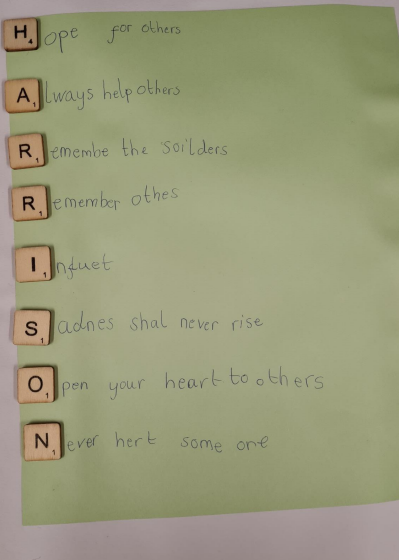 Hope for others
Always help others
Remembe the soilders
Remember othes
Influet
Sadnes shal never rise
Open your heart to others
Never hert some one